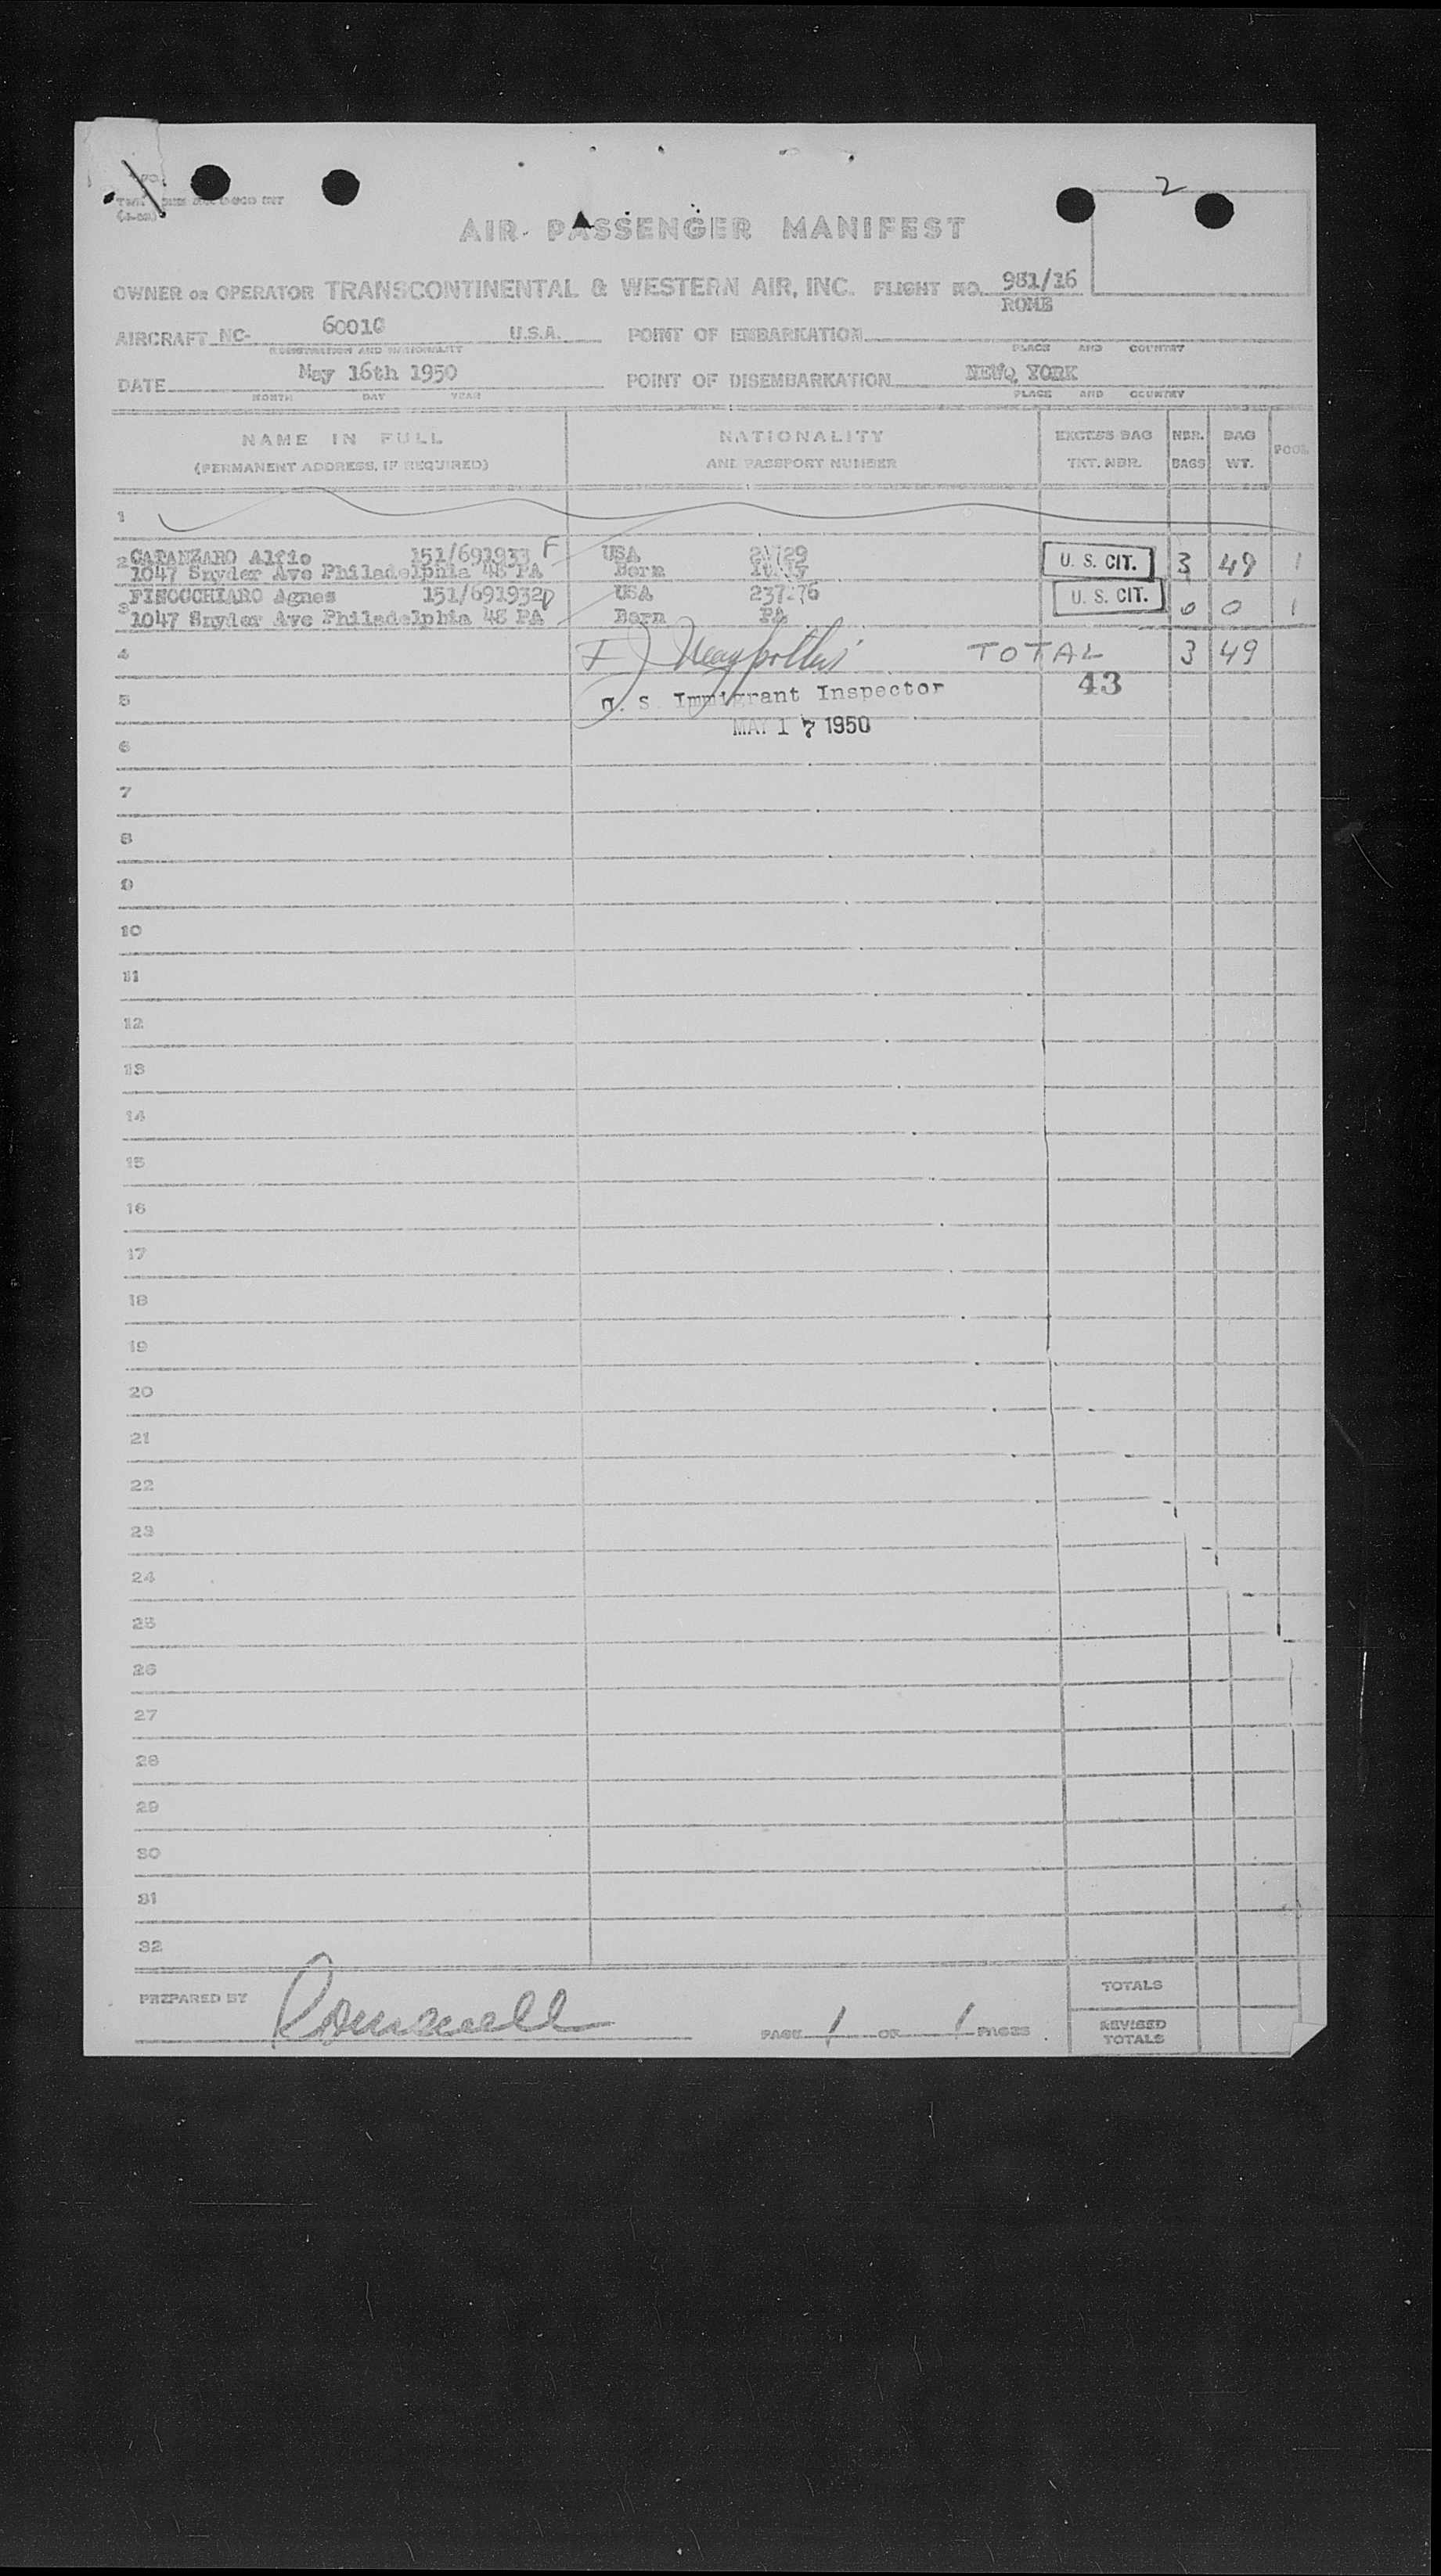 2
AIR PASSENGER MANIFEST
OWNER OR OPERATOR TRANSCONTINENTAL & WESTERN AIR, INC. FLIGHT NO. 981/16
ROME
AIRCRAFT NC- 60010 U.S.A. POINT OF EMBARKATION
REGISTRATION AND NATIONALITY PLACE AND COUNTRY
DATE May 16th 1950 POINT OF DISEMBARKATION NEWQ YORK
MONTH DAY YEAR PLACE AND COUNTRY
NAME IN FULL NATIONALITY EXCESS BAG NBR. BAG POOL
(PERMANENT ADDRESS, IF REQUIRED) AND PASSPORT NUMBER TKT. NBR. BAGS WT.
1
2 CATANZARO Alfio 151/691933 F USA U. S. CIT. 3 49 1
1047 Snyder Ave Philadelphia 48 PA Born Italy
3 FINOCCHIARO Agnes 151/691932 USA U. S. CIT. 0 0 1
1047 Snyder Ave Philadelphia 48 PA Born PA
4 TOTAL 3 49
43
5 U. S. Immigrant Inspector
MAY 17 1950
6
7
8
9
10
11
12
13
14
15
16
17
18
19
20
21
22
23
24
25
26
27
28
29
30
31
32
PREPARED BY TOTALS
PAGE 1 OF 1 PAGES REVISED
TOTALS